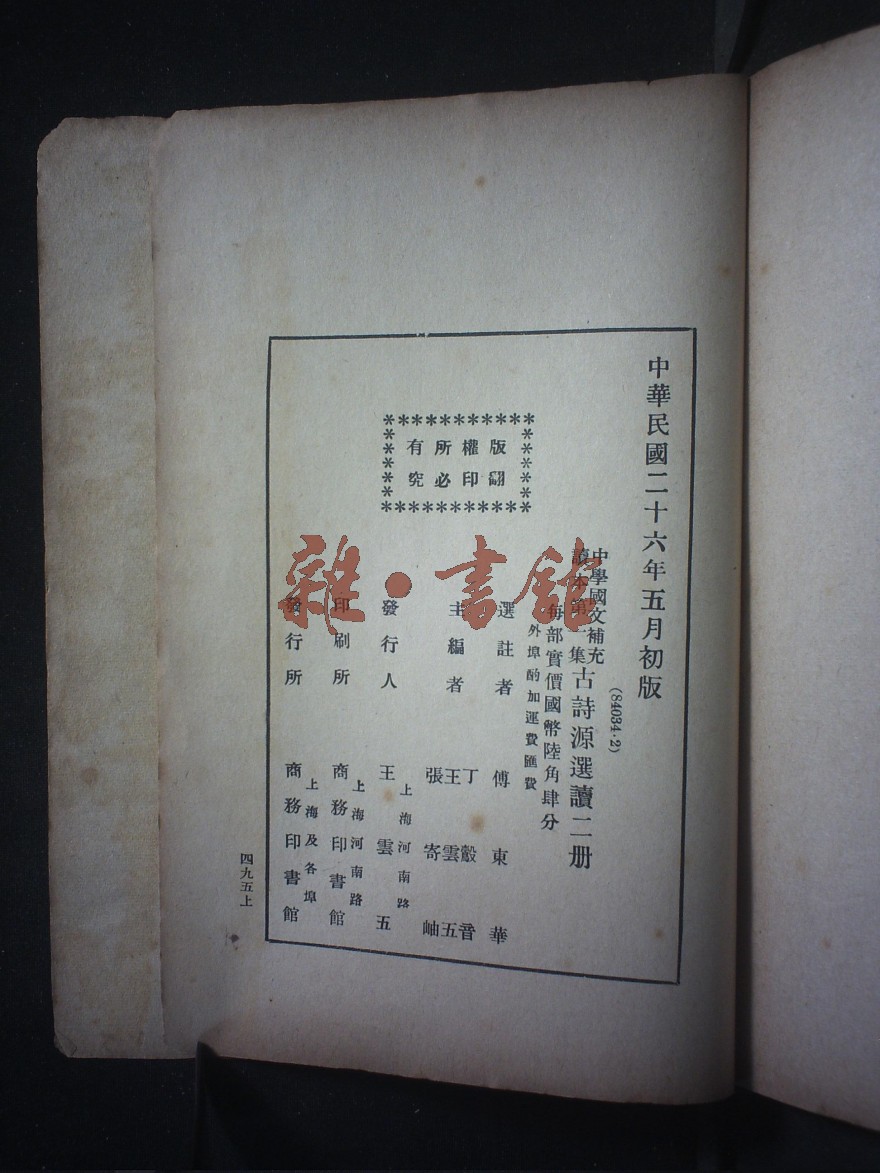 中華民國二十六年五月初版
(84034·2)
中學國文補充
讀本第一集
古詩源選讀二册
每部實價國幣陸角肆分
外埠酌加運費匯費
版權所有
翻印必究
選註者 傅東華
主編者
丁㲄音
王雲五
張寄岫
發行人
上海河南路
王雲五
印刷所
上海河南路
商務印書館
發行所
上海及各埠
商務印書館
四九五上
雜·書館